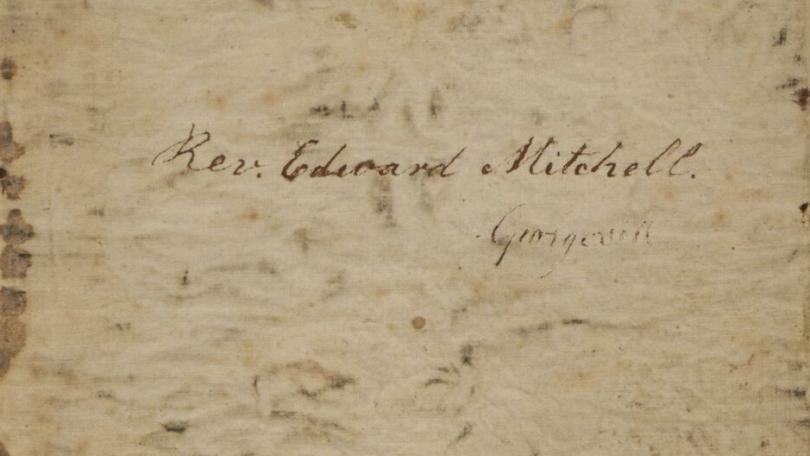 Rev. Edward Mitchell.
Georgeville